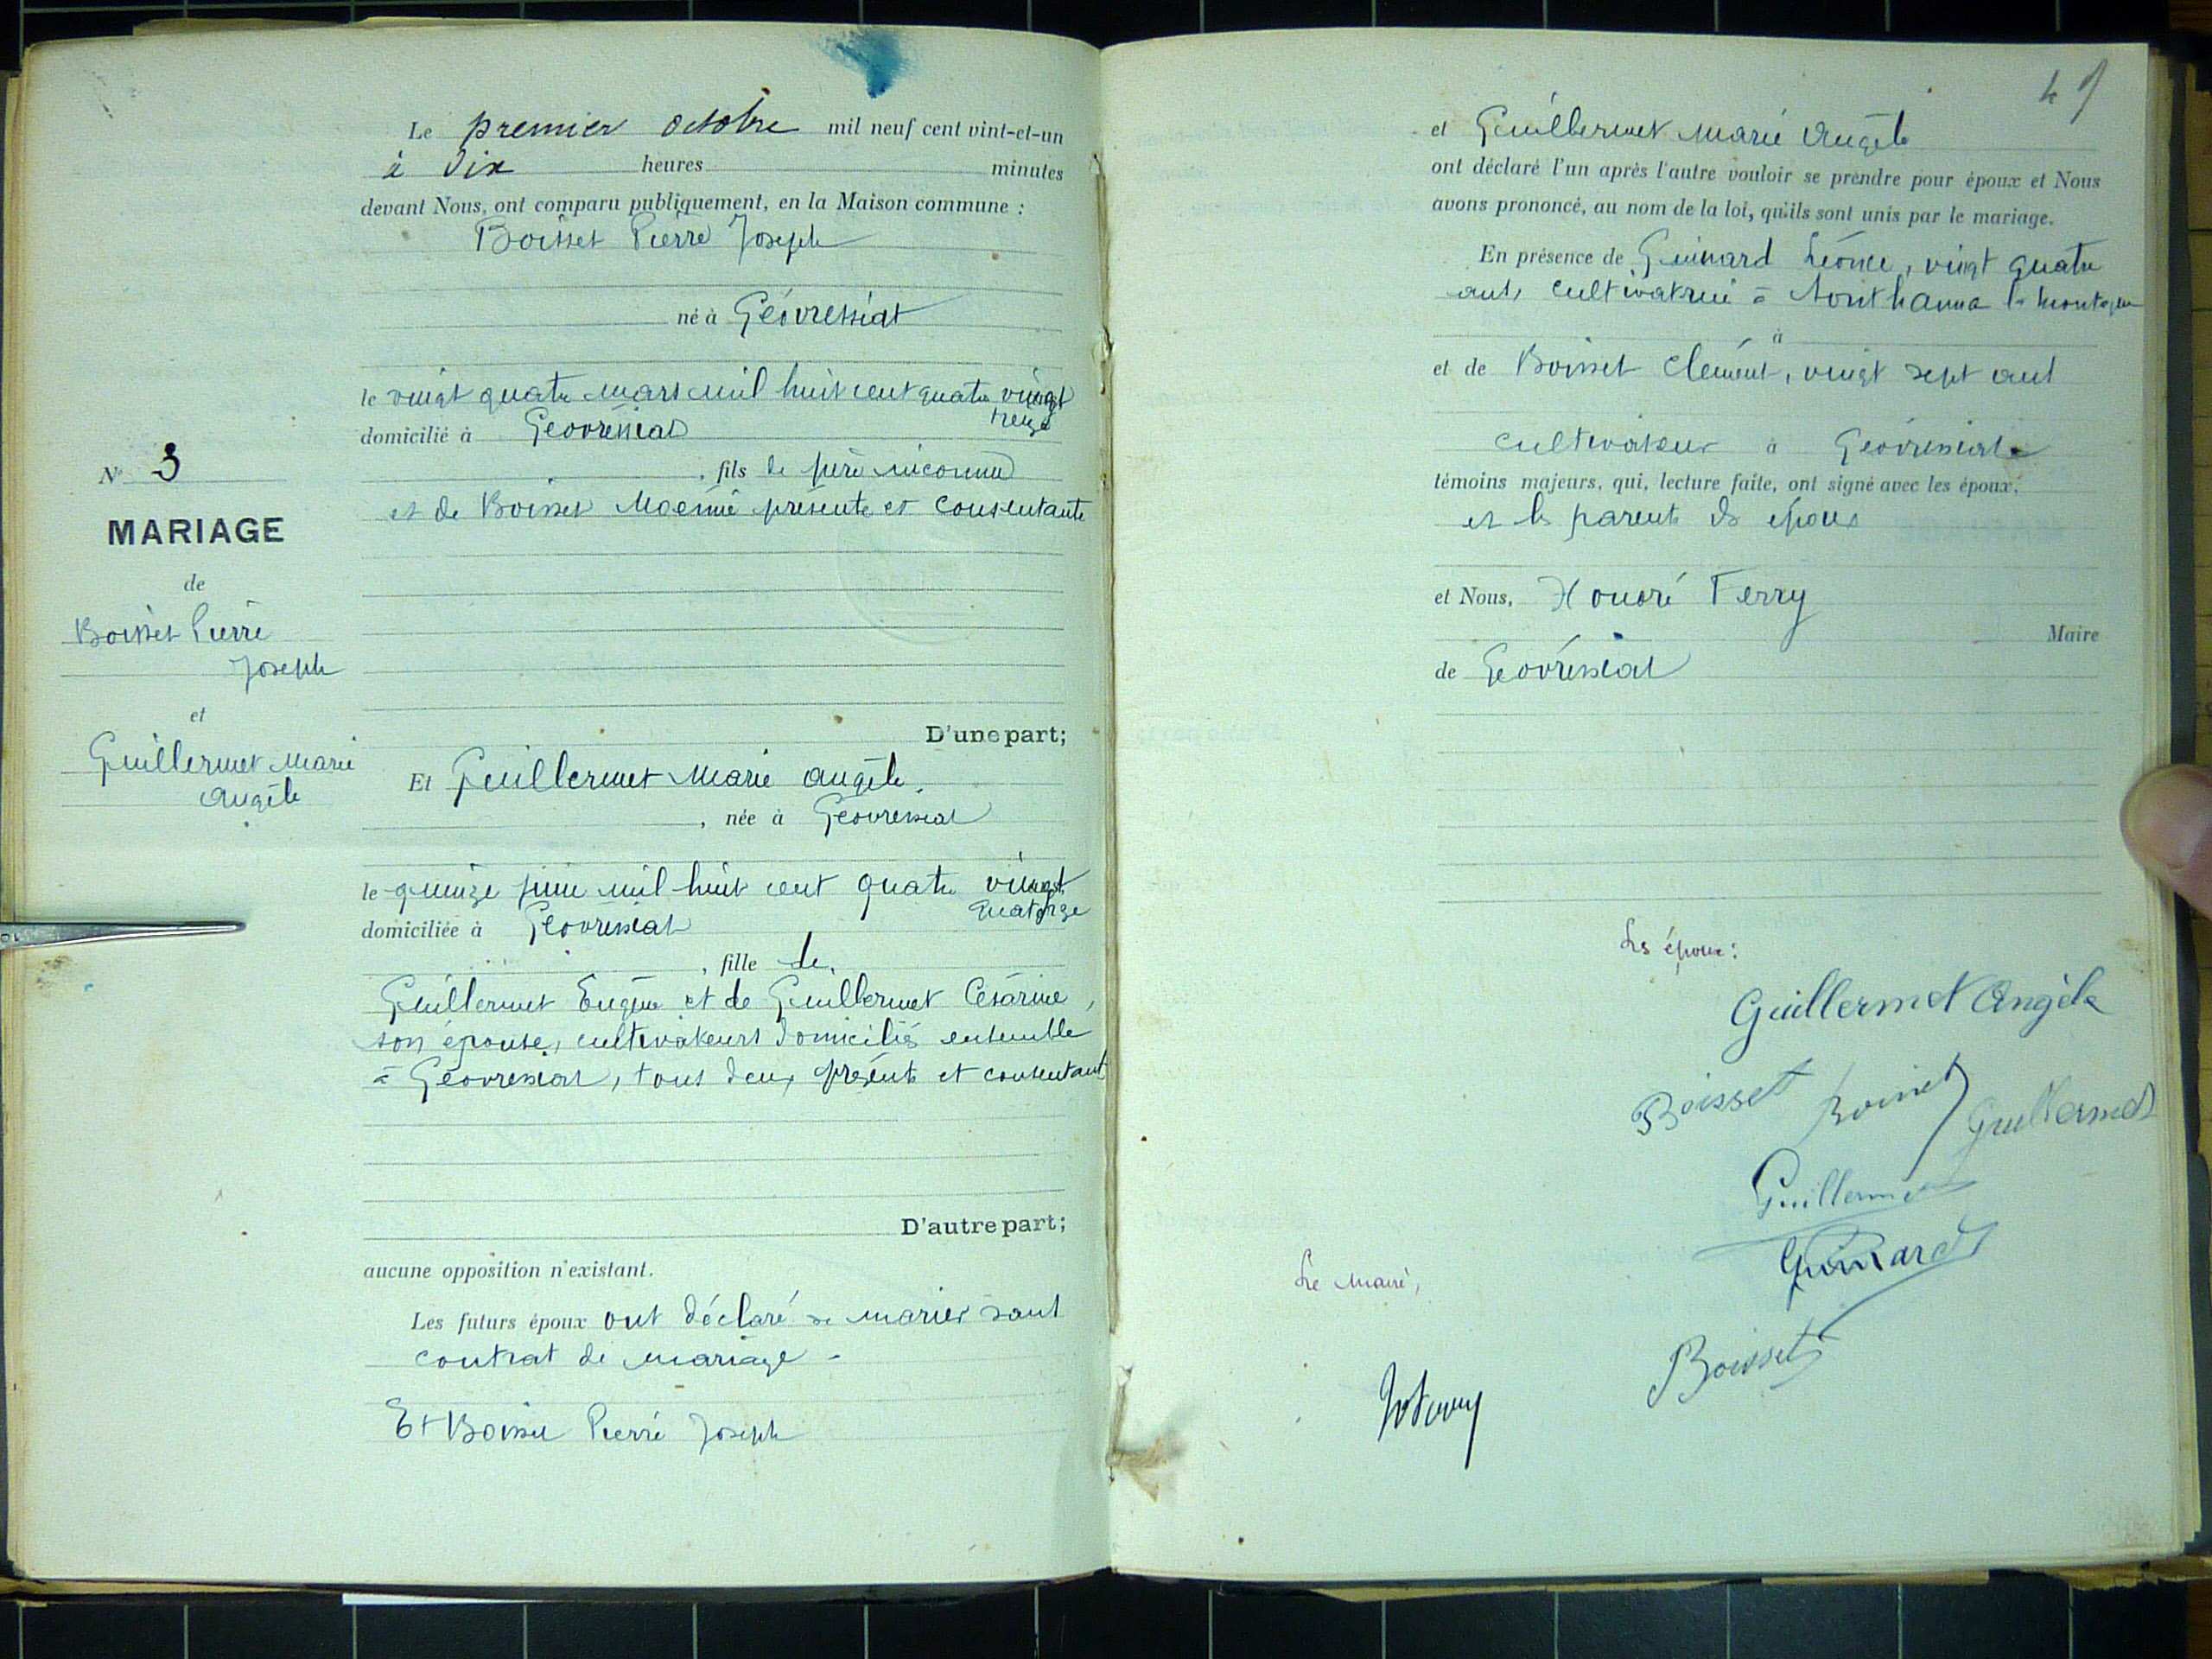 Le premier octobre mil neuf cent vint-et-un
à dix heures minutes
devant Nous, ont comparu publiquement, en la Maison commune :
Boisset Pierre Joseph
né à Géovressiat
le vingt quatre mars mil huit cent quatre vingt
treize
domicilié à Géovressiat
, fils de père inconnu
et de Boisset Noémie présente et consentante
N° 3
MARIAGE
de
Boisset Pierre
Joseph
et
Guillermet Marie
Angèle
D'une part;
Et Guillermet Marie Angèle,
, née à Géovressiat
le quinze juin mil huit cent quatre vingt
quatorze
domiciliée à Géovressiat
, fille de,
Guillermet Eugène et de Guillermet Césarine,
son épouse, cultivateurs domiciliés ensemble
à Géovressiat, tous deux présents et consentants
D'autre part;
aucune opposition n'existant.
Les futurs époux ont déclaré se marier sans
contrat de mariage -
Et Boisset Pierre Joseph
49
et Guillermet Marie Angèle
ont déclaré l'un après l'autre vouloir se prendre pour époux et Nous
avons prononcé, au nom de la loi, qu'ils sont unis par le mariage.
En présence de Guinard Léonce, vingt quatre
ans, à la montagne
à
et de Boisset Clément, vingt sept ans
cultivateur à Géovressiat
témoins majeurs, qui, lecture faite, ont signé avec les époux,
et les parents des époux
et Nous, Honoré Ferry
Maire
de Géovressiat
Les époux :
Guillermet Angèle
Boisset Boisset Guillermet
Guillermet
Guinard
Le Maire,
Boisset